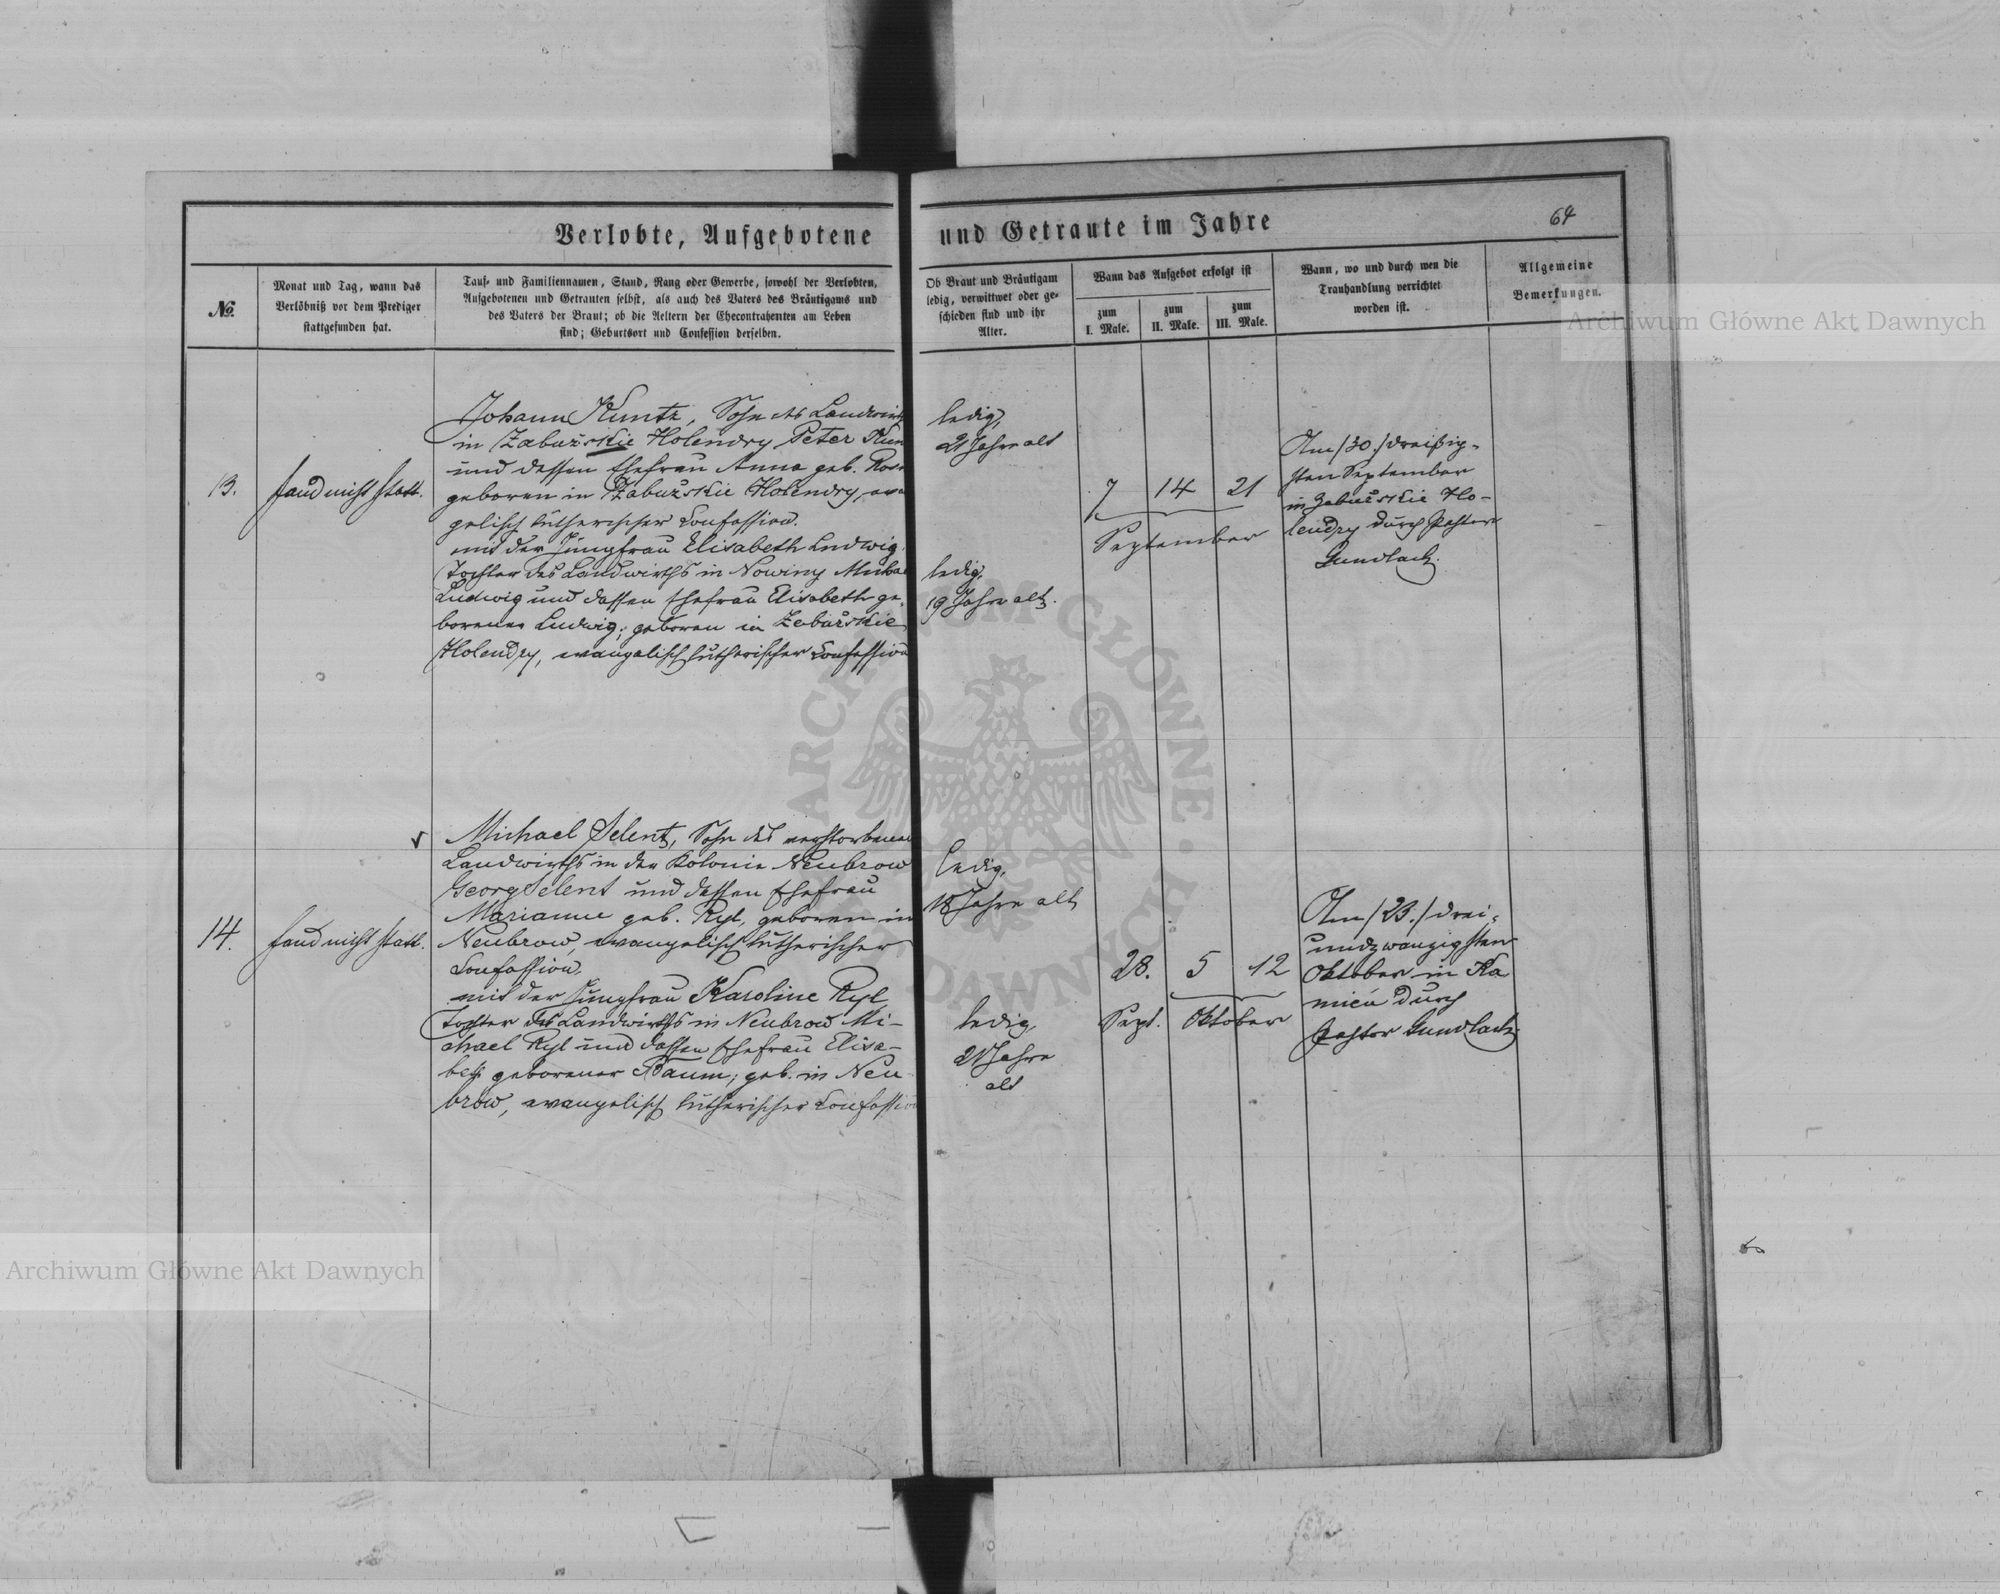 Verlobte, Aufgebotene und Getraute im Jahre
64
№
Monat und Tag, wann das
Verlöbniß vor dem Prediger
stattgefunden hat.
Tauf- und Familiennamen, Stand, Rang oder Gewerbe, sowohl der Verlobten,
Aufgebotenen und Getrauten selbst, als auch des Vaters des Bräutigams und
des Vaters der Braut; ob die Aeltern der Ehecontrahenten am Leben
sind; Geburtsort und Confession derselben.
Ob Braut und Bräutigam
ledig, verwittwet oder ge-
schieden sind und ihr
Alter.
Wann das Aufgebot erfolgt ist
zum
I. Male.
zum
II. Male.
zum
III. Male.
Wann, wo und durch wen die
Trauhandlung verrichtet
worden ist.
Allgemeine
Bemerkungen.
13.
fand nicht statt.
Johann Kuntz, Sohn des Landwirths
in Zabużskie Holendry Peter Kun
und dessen Ehefrau Anna geb.
geboren in Zabużskie Holendry, evan
gelisch lutherischer Confession.
mit der Jungfrau Elisabeth Ludwig,
Tochter des Landwirths in Nowiny Micha
Ludwig und dessen Ehefrau Elisabeth ge-
borener Ludwig; geboren in Zabużskie
Holendry, evangelisch lutherischer Confession
ledig,
21 Jahre alt
ledig,
19 Jahre alt.
7
14
21
September
Am /30./ dreißig-
sten September
in Zabużskie Ho-
lendry durch Pastor
Gundlach.
14.
fand nicht statt.
Michael Selent, Sohn des verstorbenen
Landwirths in der Kolonie Neubrow
Georg Selent und dessen Ehefrau
Marianne geb. Ryl, geboren in
Neubrow, evangelisch lutherischer
Confession.
mit der Jungfrau Karoline Ryl,
Tochter des Landwirths in Neubrow Mi-
chael Ryl und dessen Ehefrau Elisa-
beth geborener Baum; geb. in Neu
brow, evangelisch lutherischer Confession
ledig,
18 Jahre alt
ledig,
21 Jahre
alt
28.
5
12
Sept.
Oktober
Am /23./ drei-
undzwanzigsten
Oktober in Ka
mień durch
Pastor Gundlach.
Archiwum Główne Akt Dawnych
Archiwum Główne Akt Dawnych
ARCHIWUM GŁÓWNE AKT DAWNYCH